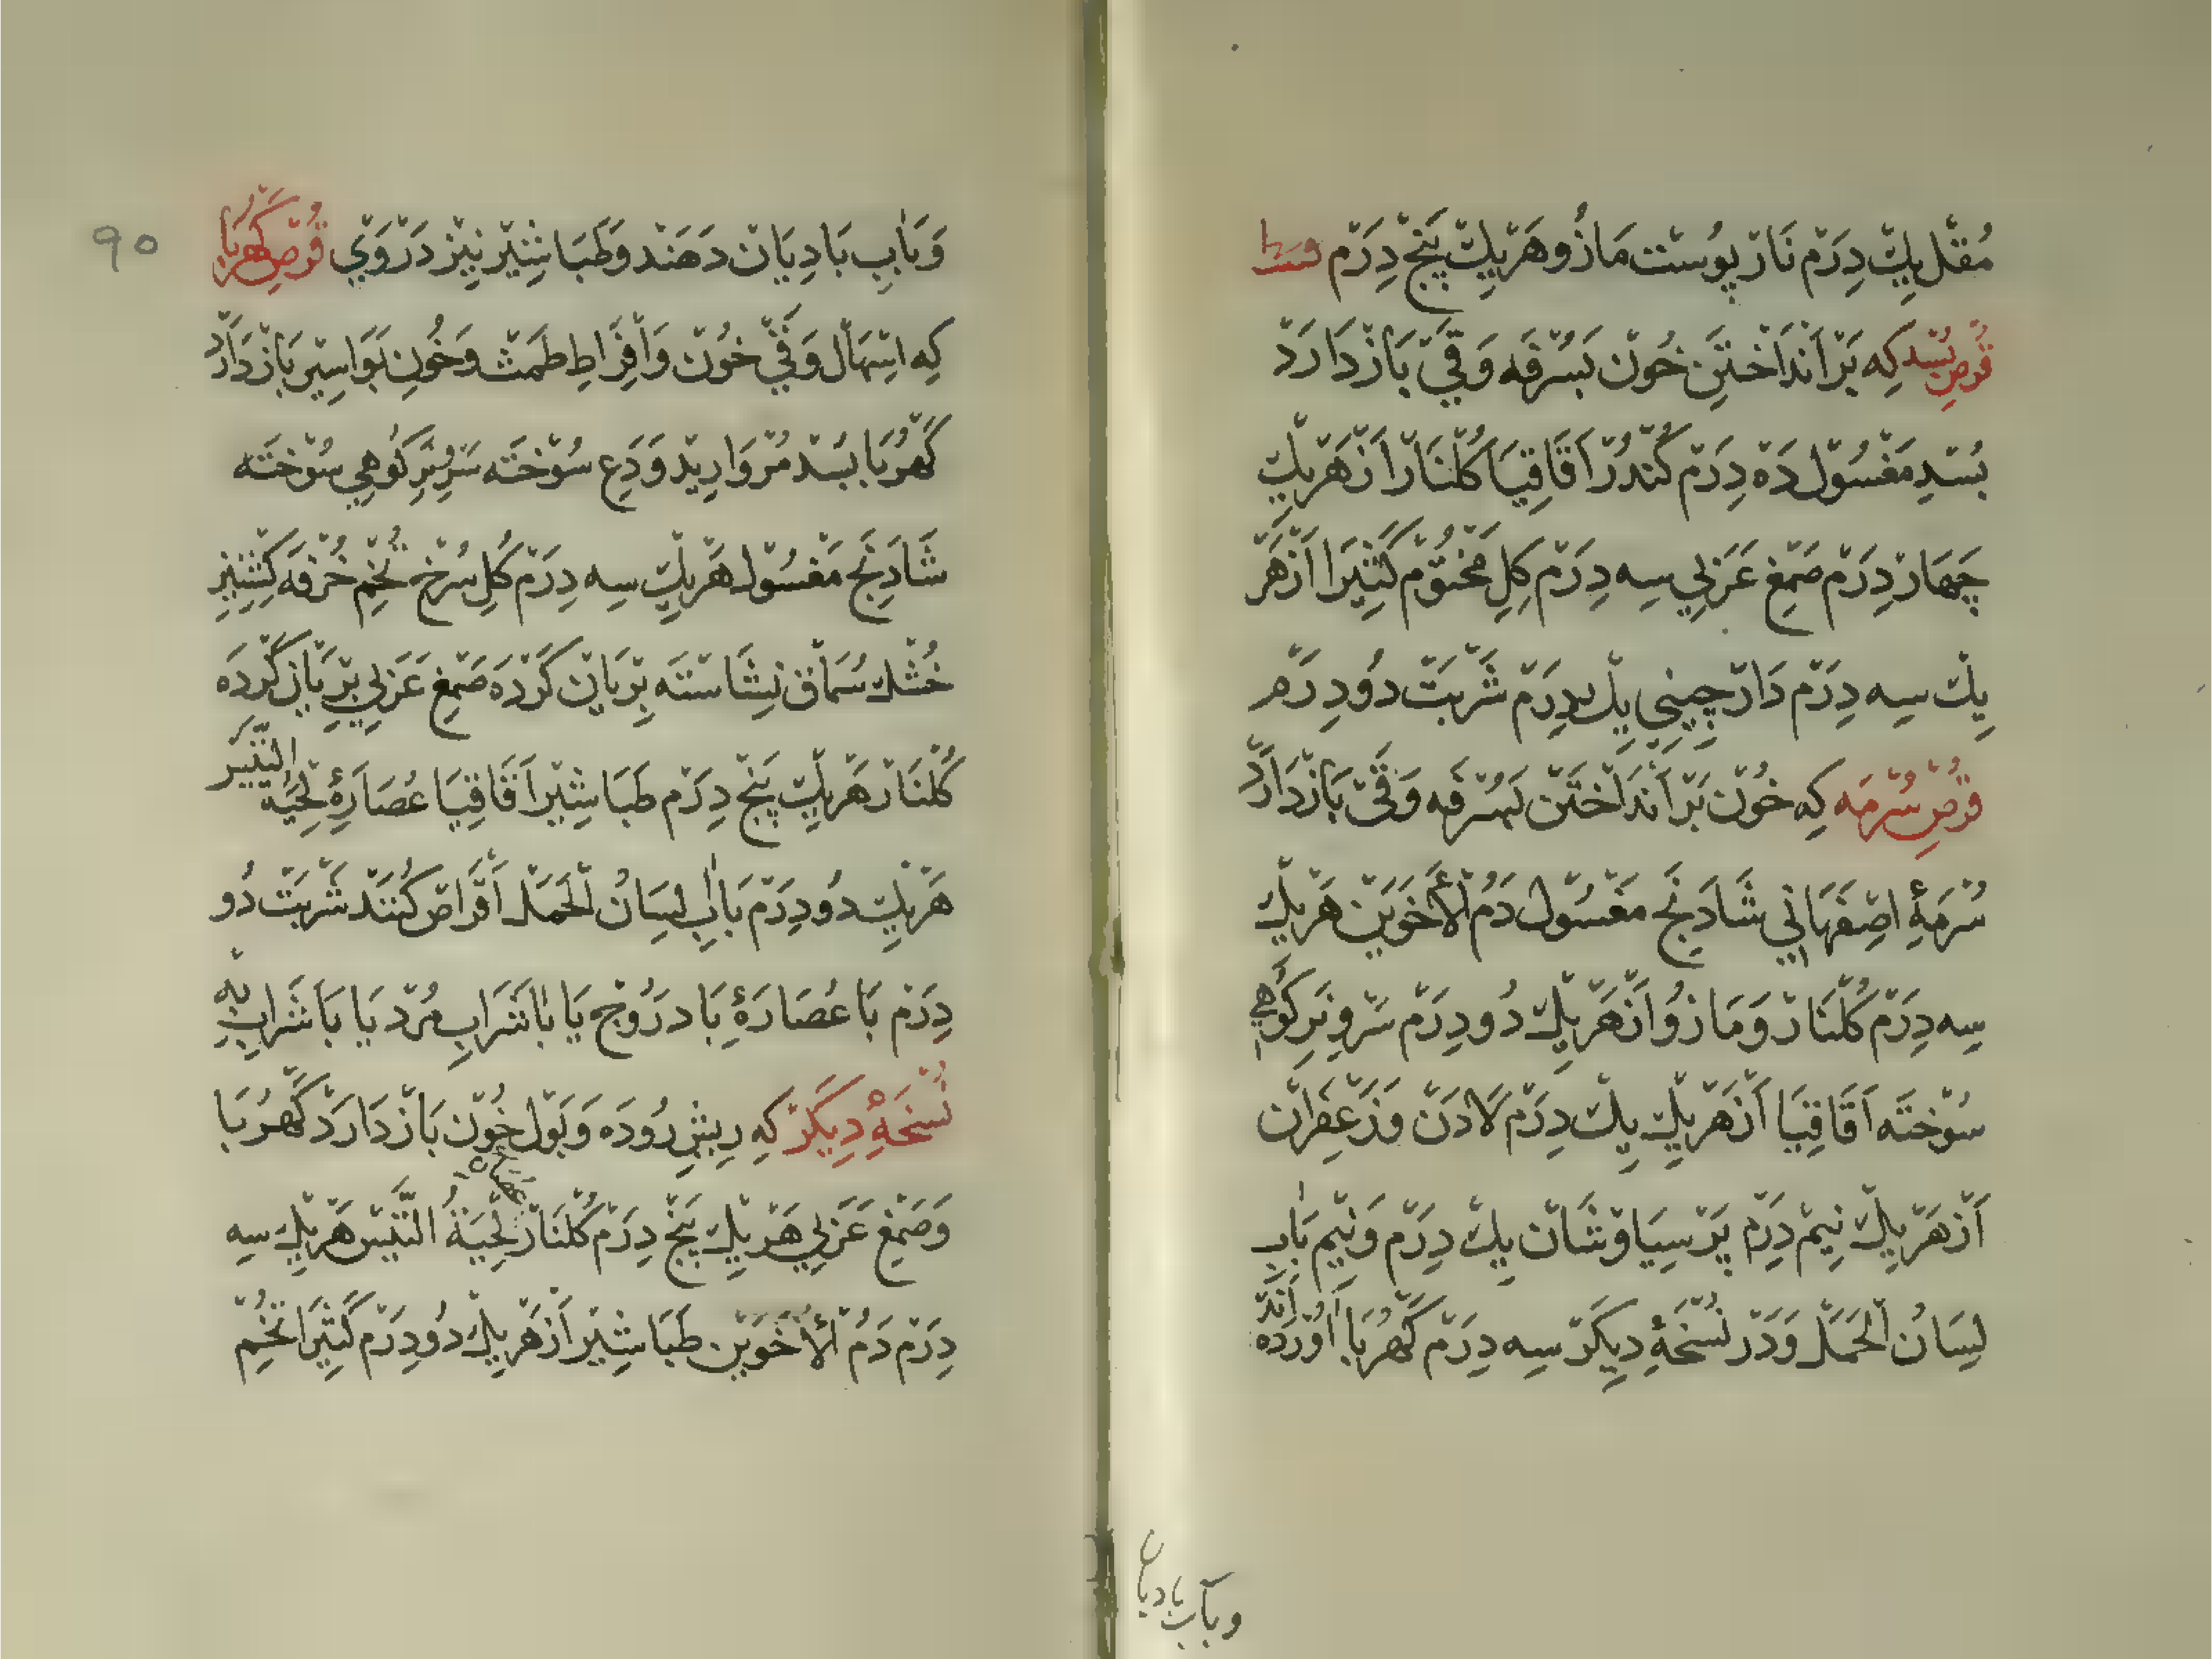 مُقْل يِكْ دِرَمْ نَارْ پوُسْت مَازُو هَرْ يِكْ پَنْج دِرَمْ
قُرْصِ بُسَّد كِه بَرْ اَنْدَاخْتَنِ خُونْ بَسُرْفَه وَقَيْ بَازْ دَارَدْ
بُسَّدِ مَغْسُوْل دَه دِرَمْ كُنْدُرْ اَقَاقِيَا كُلْنَارْ اَزْ هَرْ يِكْ
چَهَارْ دِرَمْ صَمْغِ عَرَبِي سِه دِرَمْ كِلِ مَخْتُوْمْ كَثِيْرَا اَزْ هَرْ
يِكْ سِه دِرَمْ دَارْچِيْنِي يِكْ دِرَمْ شَرْبَتْ دُو دِرَمْ
قُرْصِ سُرْمَه كِه خُوْنْ بَرْ اَنْدَاخْتَنْ بَسُرْفَه وَقَيْ بَازْ دَارَدْ
سُرْمَهٔ اصِفَهَانِي شَادَنَجِ مَغْسُوْل دَمُ الْأَخَوَيْن هَرْ يِكْ
سِه دِرَمْ كُلْنَارْ وَمَازُو اَزْ هَرْ يِكْ دُو دِرَمْ سَرُوِنَرِ كُوْهِي
سُوْخْتَه اَقَاقِيَا اَزْ هَرْ يِكْ يِكْ دِرَمْ لَادَنْ وَزَعْفَرَانْ
اَزْ هَرْ يِكْ نِيمْ دِرَمْ پَرْسِيَاوُشَانْ يِكْ دِرَمْ وَنِيْم بَابِ
لِسَانُ الْحَمَل وَدَرْ نُسْخَهٔ دِيكَرْ سِه دِرَمْ كَهْرُبَا اٰوَرْدَه اَنْدْ
وبآب باديان
٩٠
وَبَابِ بَادِيَانْ دَهَنْد وَطَبَاشِيْر نِيْز دَرْوَيْ قُرْصِ كَهْرُبَا
كِه اسِهَالْ وَقَيْ خُونْ وَاَفْرَاطِ طَمَثْ وَخُونِ بَوَاسِيْر بَازْ دَارَدْ
كَهْرُبَا بُسَّدْ مُرْوَارِيْد وَدَعِ سُوْخَتَه سَرُوِنَرِ كُوْهِي سُوْخَتَه
شَادَنَج مَغْسُوْل هَرْ يِكْ سِه دِرَمْ كُلِ سُرْخ تُخْمِ خُرْفَه كَشْنِيْزِ
خُشْك سُمَاقْ نِشَاسْتَه بِرْيَانْ كَرْدَه صَمْغِ عَرَبِي بِرْيَانْ كَرْدَه
كُلْنَارْ هَرْ يِكْ پَنْج دِرَمْ طَبَاشِيْر اَقَاقِيَا عُصَارَهٔ لِحْيَةُ التَّيْسْ
هَرْ يِكْ دُو دِرَمْ بَابِ لِسَانُ الْحَمَل اَقْرَاصْ كُنَنْد شَرْبَتْ دُو
دِرَمْ بَا عُصَارَهٔ بَادَرُوْج يَا بَا شَرَابِ مُرْد يَا بَا شَرَابِ بِهْ
نُسْخَهٔ دِيكَرْ كِه رِيشِ رُودَه وَبَوْل خُوْن بَازْ دَارَدْ كَهْرُبَا
وَصَمْغِ عَرَبِي هَرْ يِكْ پَنْج دِرَمْ كُلْنَارْ لِحْيَةُ التَّيْس هَرْ يِكْ سِه
دِرَمْ دَمُ الْأَخَوَيْن طَبَاشِيْر اَزْ هَرْ يِكْ دُو دِرَمْ كَثِيْرَا تُخْمِ